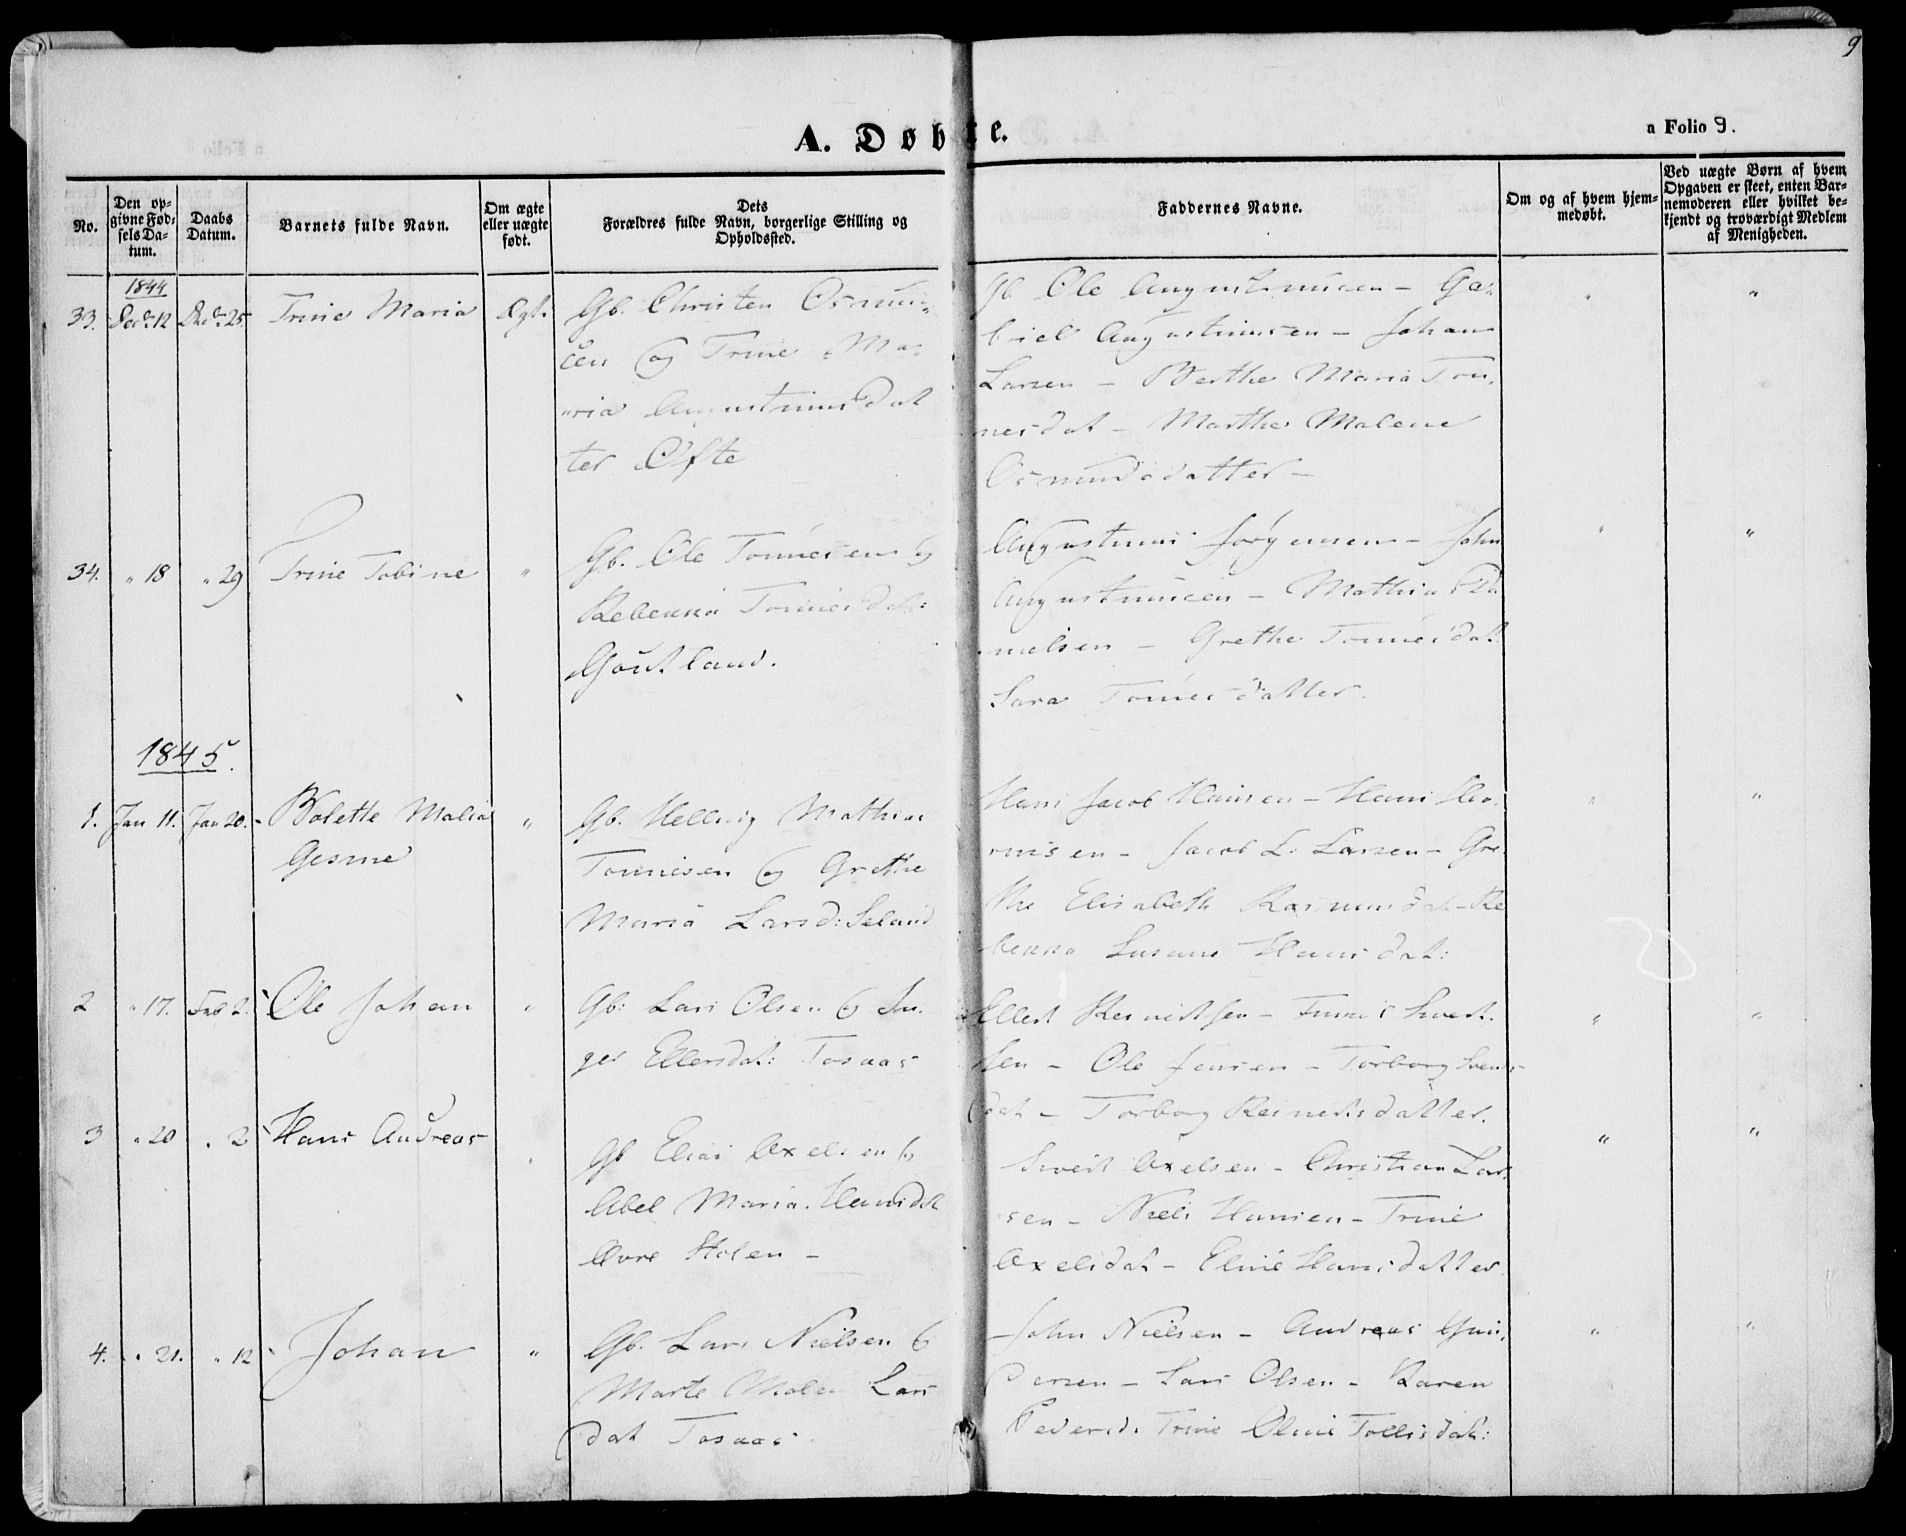 9
A. Døbte.
a Folio 9.
No.
Den op-
givne Fød-
sels Da-
tum.
Daabs
Datum.
Barnets fulde Navn.
Om ægte
eller uægte
født.
Dets
Forældres fulde Navn, borgerlige Stilling og
Opholdssted.
Faddernes Navne.
Om og af hvem hjem-
medøbt.
Ved uægte Børn af hvem
Opgaven er skeet, enten Bar-
nemoderen eller hvilket be-
kjendt og troværdigt Medlem
af Menigheden.
1844
33. Decbr 12 Decbr 25. Trine Maria Ægt.
Gb. Christen Osmun-
sen og Trine Ma-
ria Augustinusdat
ter Øfte
Gb Ole Augustinusen - Ga-
briel Augustinusen - Johan
Larsen - Berthe Maria Ton-
nesdat - Marthe Malene
Osmundsdatter -
34. " 18 " 29 Trine Tobine "
Gb. Ole Tonnesen og
Rebekka Tonnesdat:
Gautland.
Augustinus Jörgensen - John
Augustinusen - Mathias Da
nielsen - Grethe Tonnesdat
Sara Tonnesdatter.
1845.
1. Jan 11. Jan 20. Bolette Malia
Gesine "
Gb. Hellvig Mathias
Tonnesen og Grethe
Maria Larsd: Seland
Hans Jacob Hansen - Hans
Jacob L. Larsen - Gre-
the Elisabeth Rasmusdat - Re
bekka Susane Hansdat:
2 " 17. Feb 2. Ole Johan "
Gb: Lars Olsen og In-
ger Ellersdat: Tosaas
Ellert Reinertsen - Tonnes Svert-
sen - Ole Jensen - Torborg Svens-
dat - Torborg Reinertsdatter.
3 " 20 " 2 Hans Andreas "
Gb Elias Axelsen og
Abel Maria Hansdat
Øvre Stolen -
Svert Axelsen - Christian Lar
sen - Niels Hansen - Trine
Axelsdat - Eline Hansdatter
4. " 21. " 12 Johan "
Gb. Lars Nielsen og
Marte Malen Lars
dat Tosaas
John Nielsen - Andreas Gun-
dersen - Lars Olsen - Karen
Pedersd: Trine Oline Tollisdat: